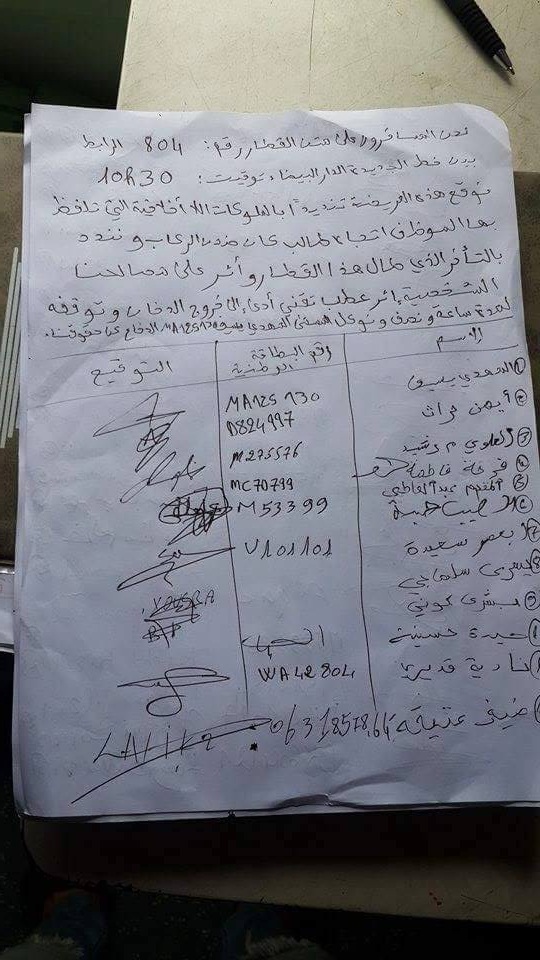 نحن المسافرون على متن القطار رقم: 804 الرابط
بين خط الجديدة الدار البيضاء توقيت: 10h30
نوقع هذه العريضة تنديدًا بالسلوكات اللا أخلاقية التي تلفظ
بها الموظف اتجاه طالب كان ضمن الركاب و نندد
بالتأخر الذي طال هذا القطار و أثر على مصالحنا
الشخصية إثر عطب تقني أدى إلى خروج الدخان و توقفه
لمدة ساعة و نصف و نوكل السعدي الدفاع عن حقوقنا.
الإسم رقم البطاقة الوطنية التوقيع
① السعدي MA125130
② أيمن D824997
③ العلوي م رشيد M275576
④ فاطمة MC70799
⑤ عبد العاطي M53399
⑥
⑦ سعيدة V101101
⑧ يسرى سلماني
⑨ بشرى YOUSRA
حسنية
نادية قديري WA42804
ضيف عتيقة 0631857864 LATIKA